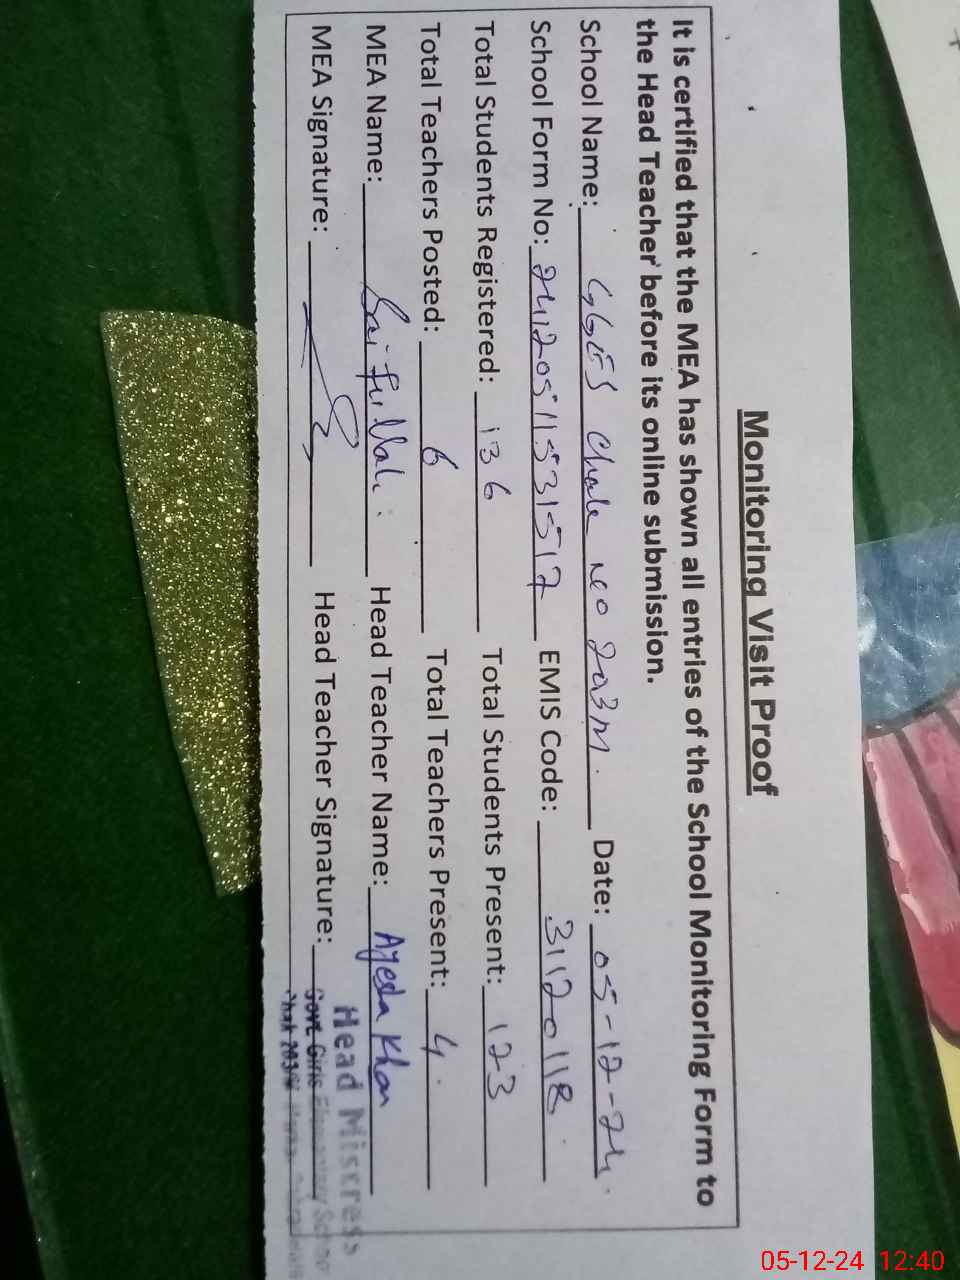 Monitoring Visit Proof
It is certified that the MEA has shown all entries of the School Monitoring Form to
the Head Teacher before its online submission.
School Name: GGES Chak no 203M. Date: 05-12-24.
School Form No: 24120511531517 EMIS Code: 31120118
Total Students Registered: 136 Total Students Present: 123
Total Teachers Posted: 6 Total Teachers Present: 4.
MEA Name: Saifullah. Head Teacher Name: Ayesha Khan
MEA Signature: Head Teacher Signature:
Head Mistress
Govt. Girls Elementary School
Chak 203
05-12-24 12:40